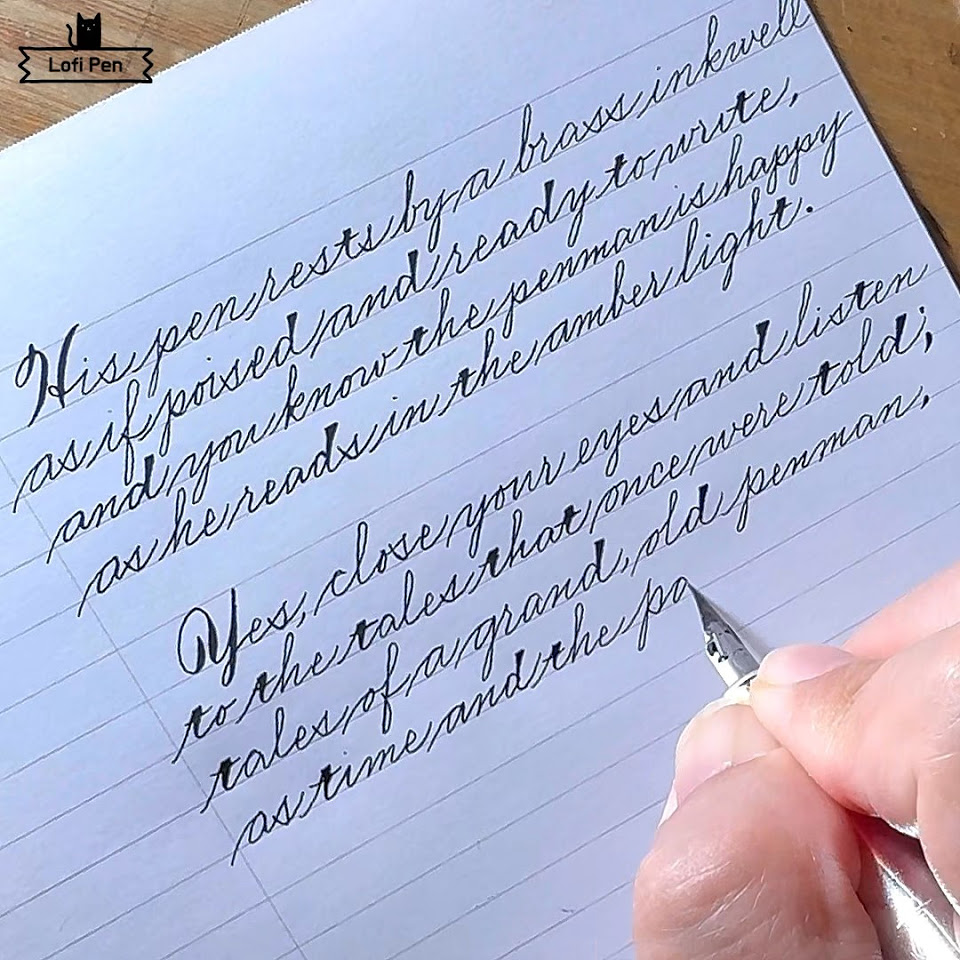 Lofi Pen
His pen rests by a brass inkwell
as if poised and ready to write,
and you know the penman is happy
as he reads in the amber light.
Yes, close your eyes and listen
to the tales that once were told;
tales of a grand, old penman,
as time and the pa